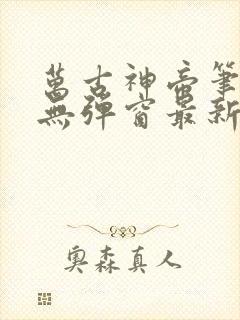 萬古神帝筆
無彈窗最新
奧森真人